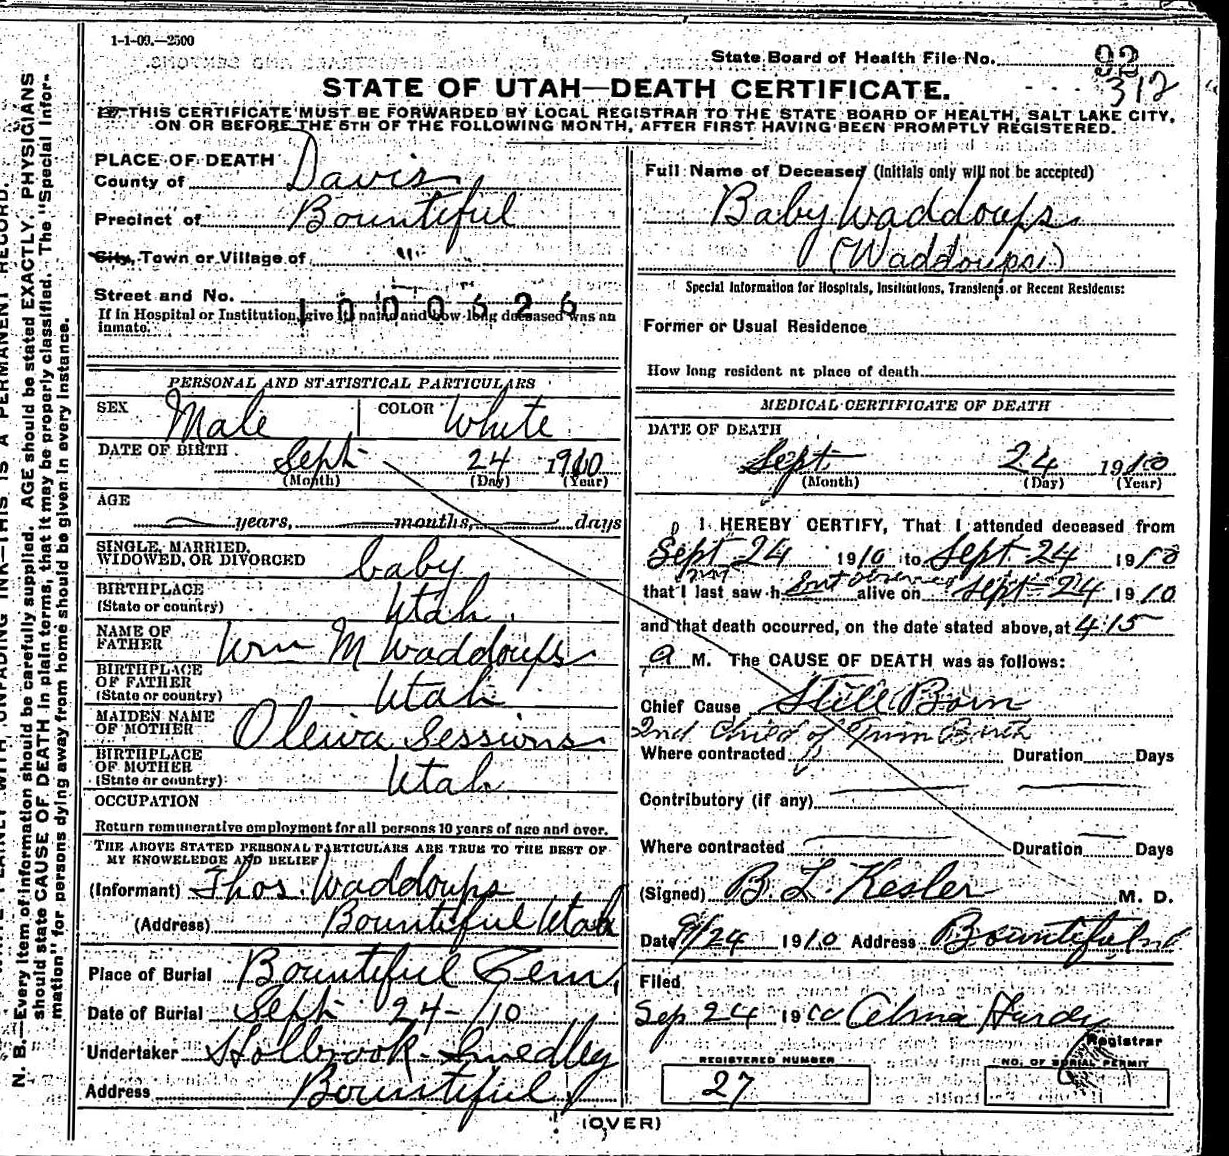 1-1-09.—2500
State Board of Health File No. 92
312
STATE OF UTAH—DEATH CERTIFICATE.
THIS CERTIFICATE MUST BE FORWARDED BY LOCAL REGISTRAR TO THE STATE BOARD OF HEALTH, SALT LAKE CITY,
ON OR BEFORE THE 5TH OF THE FOLLOWING MONTH, AFTER FIRST HAVING BEEN PROMPTLY REGISTERED.
PLACE OF DEATH
County of Davis
Precinct of Bountiful
City, Town or Village of "
Street and No.
1000626
If in Hospital or Institution, give its name and how long deceased was an
inmate.
PERSONAL AND STATISTICAL PARTICULARS
SEX Male COLOR White
DATE OF BIRTH Sept 24 1910
(Month) (Day) (Year)
AGE
years, months, days
SINGLE, MARRIED,
WIDOWED, OR DIVORCED baby
BIRTHPLACE
(State or country) Utah
NAME OF
FATHER Wm M Waddoups
BIRTHPLACE
OF FATHER
(State or country) Utah
MAIDEN NAME
OF MOTHER Oleiva Sessions
BIRTHPLACE
OF MOTHER
(State or country) Utah
OCCUPATION
Return remunerative employment for all persons 10 years of age and over.
THE ABOVE STATED PERSONAL PARTICULARS ARE TRUE TO THE BEST OF
MY KNOWELEDGE AND BELIEF
(Informant) Thos. Waddoups
(Address) Bountiful Utah
Place of Burial Bountiful Cem.
Date of Burial Sept 24-/10
Undertaker Holbrook-Smedley
Address Bountiful
Full Name of Deceased (Initials only will not be accepted)
Baby Waddoups
(Waddoups)
Special Information for Hospitals, Institutions, Transients or Recent Residents:
Former or Usual Residence
How long resident at place of death
MEDICAL CERTIFICATE OF DEATH
DATE OF DEATH
Sept 24 1910
(Month) (Day) (Year)
I HEREBY CERTIFY, That I attended deceased from
Sept 24 1910 to Sept 24 1910
that I last saw h alive on Sept 24 1910
and that death occurred, on the date stated above, at 4:15
a M. The CAUSE OF DEATH was as follows:
Chief Cause Still Born
2nd Child of Twin Birth
Where contracted Duration Days
Contributory (if any)
Where contracted Duration Days
(Signed) B. L. Kesler M. D.
Date 9/24 1910 Address Bountiful
Filed
Sep 24 1910 Alma Hardy
Registrar
REGISTERED NUMBER
27
NO. OF BURIAL PERMIT
(OVER)
N. B.—Every item of information should be carefully supplied. AGE should be stated EXACTLY. PHYSICIANS
should state CAUSE OF DEATH in plain terms, that it may be properly classified. The "Special Infor-
mation" for persons dying away from home should be given in every instance.